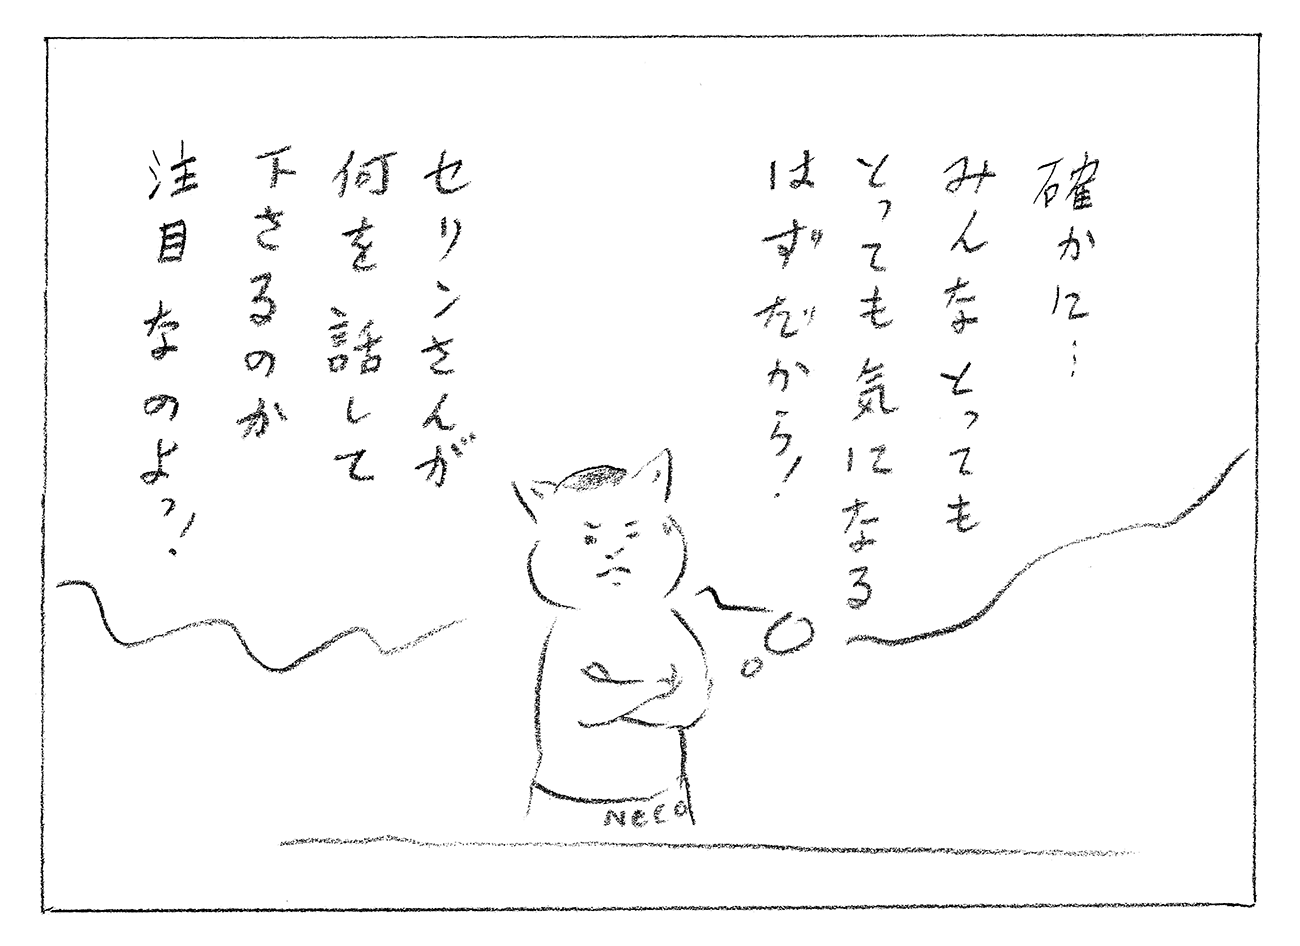 確かに…
みんなとっても
とっても気になる
はずだから!
セリンさんが
何を話して
下さるのか
注目なのよっ!
NeCO